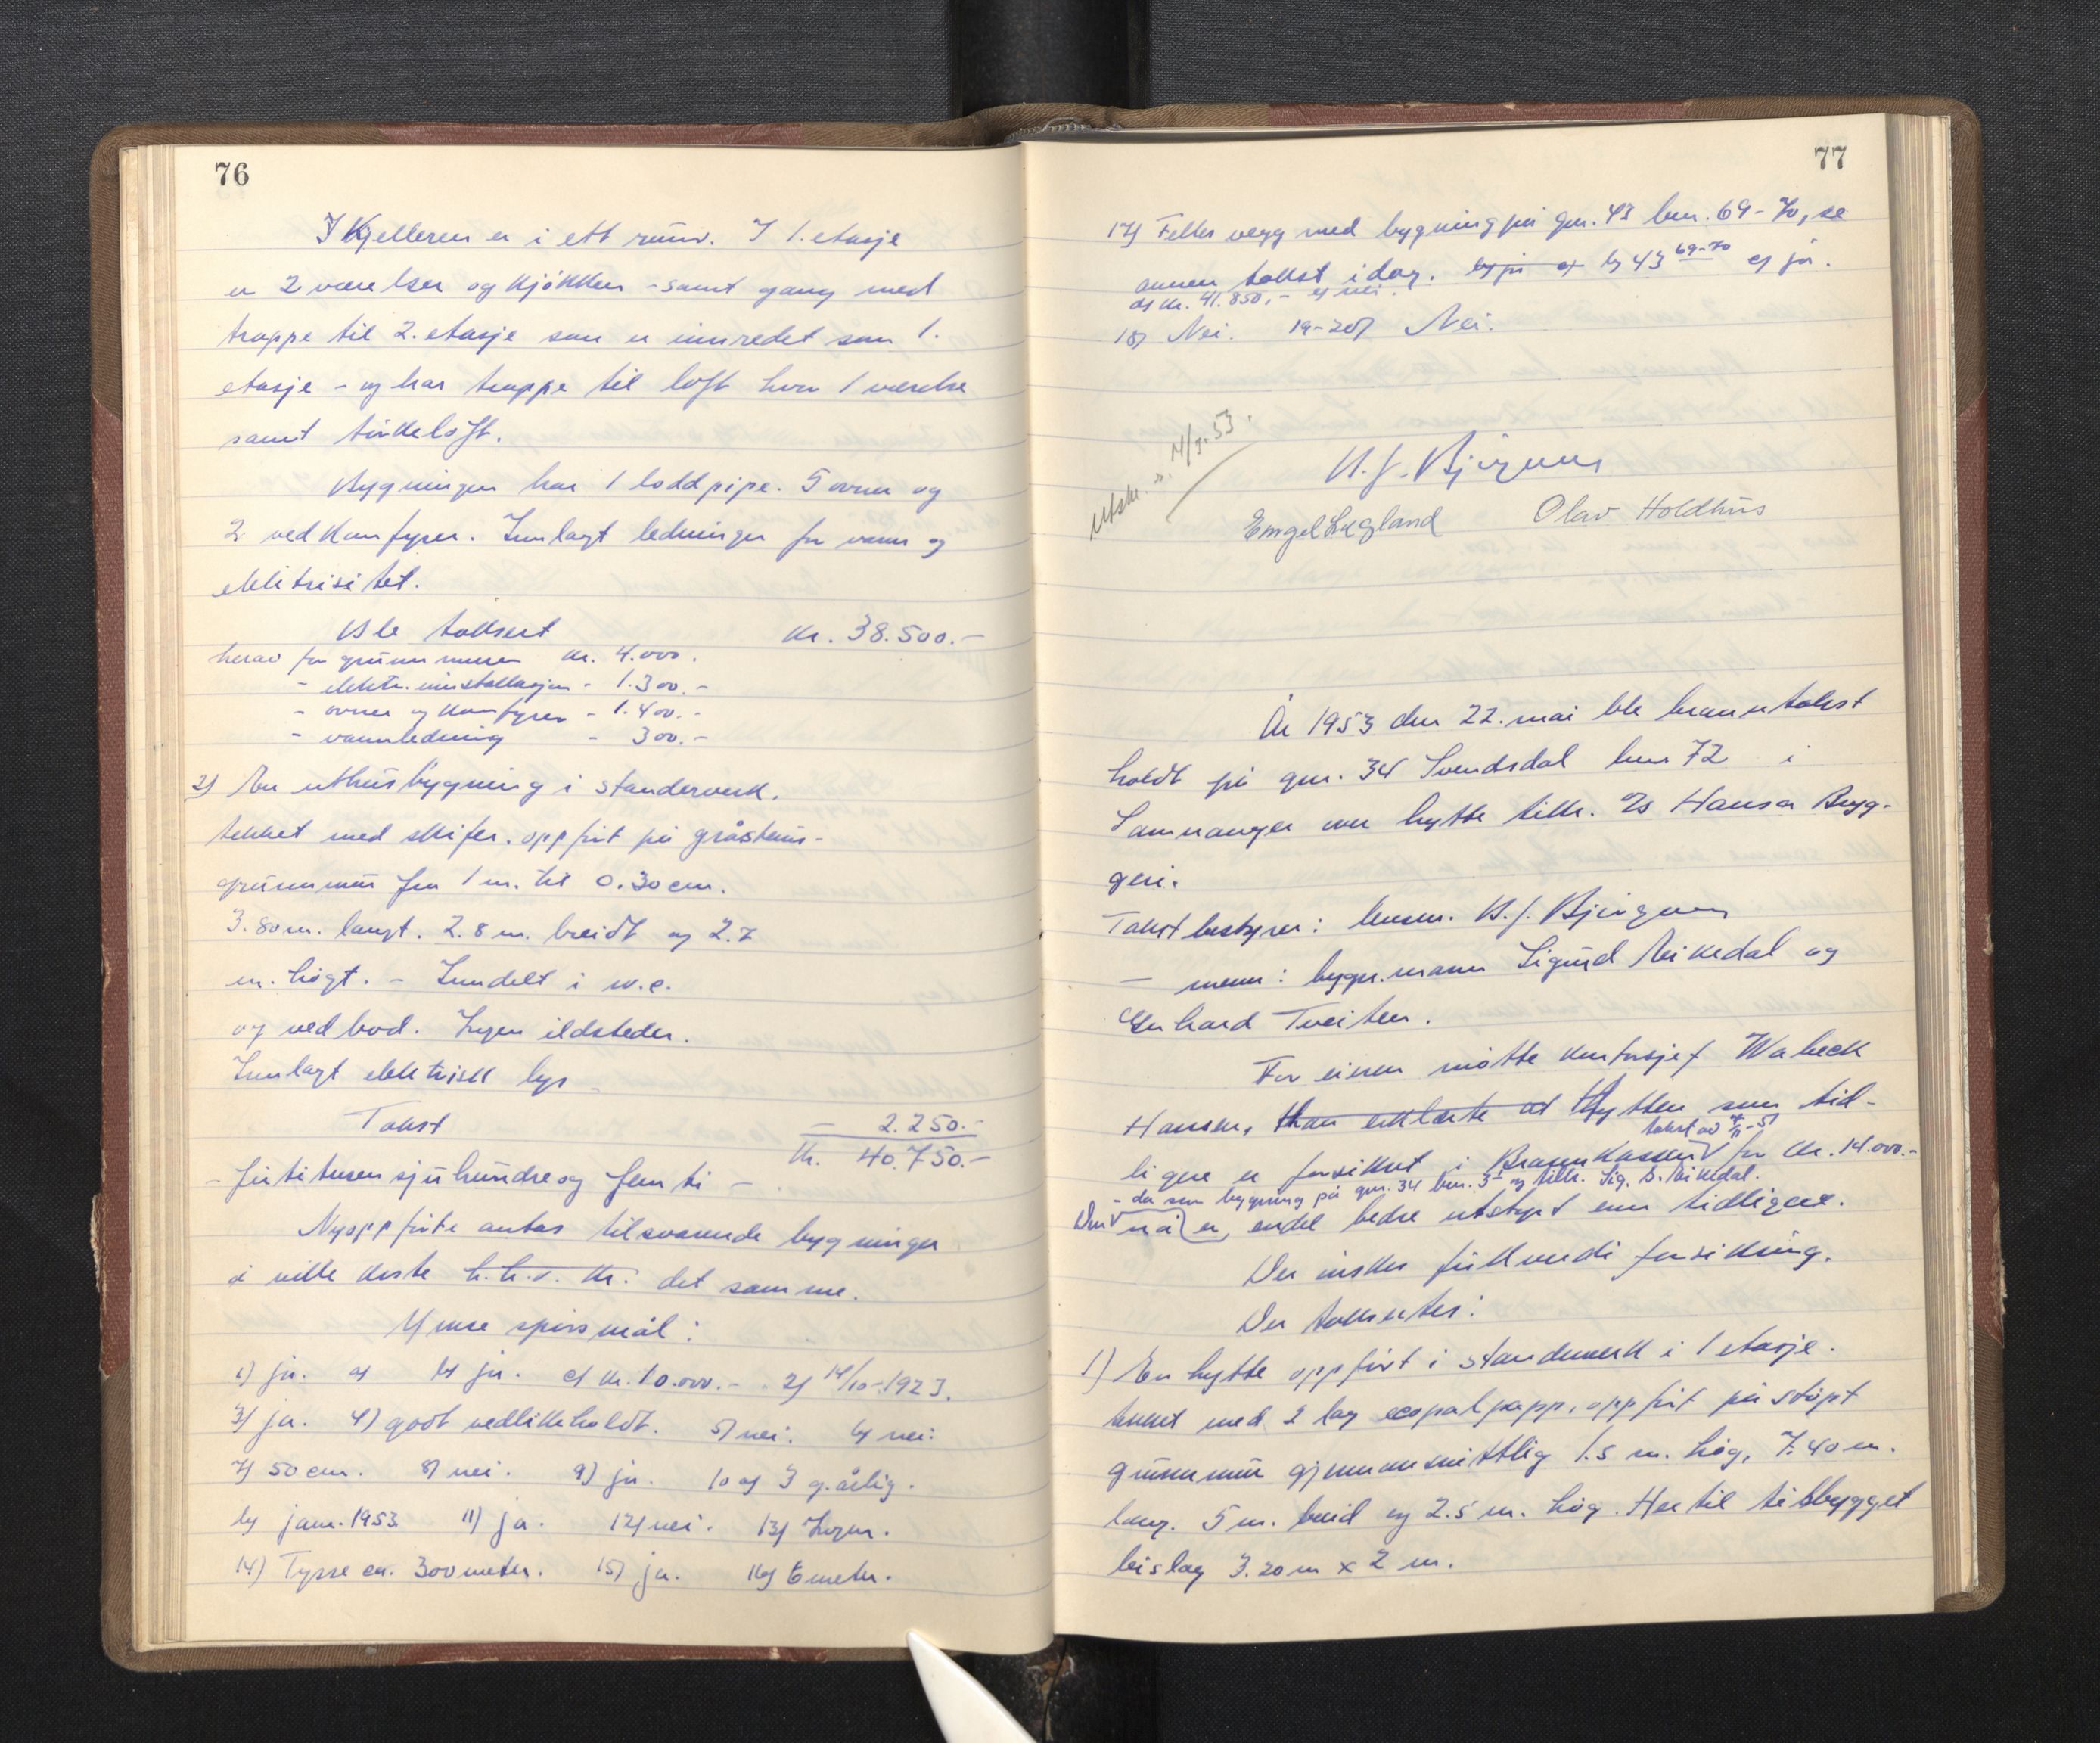 76
I Kjelleren er i ett rum. I 1. etasje
er 2 værelser og kjøkken - samt gang med
trappe til 2. etasje som er innredet som 1.
etasje - og har trappe til loft hvor 1 værelse
samt tørkeloft.
Bygningen har 1 loddpipe. 5 ovner og
2 vedkomfyrer. Innlagt ledninger for vann og
elektrisitet.
Ble taksert kr. 38.500.-
herav for grunnmuren kr. 4.000.
- elektr. innstallasjon - 1.300.-
- ovner og komfyrer - 1.400.-
- vannledning - 300.-
2) En uthusbygning i standerverk.
tekket med skifer. oppført på gråsteins-
grunnmur fra 1 m. til 0.30 cm.
3.80 m. langt. 2.8 m. breidt og 2.7
m. høgt. - Inndelt i w.c.
og vedbod. Ingen ildsteder.
Innlagt elektrisk lys
Takst - 2.250.-
Kr. 40.750.-
- førtitusensjuhundreogfemti -
Nyoppførte antas tilsvarende bygninger
å ville koste h.h.v. kr. det samme.
Ymse spørsmål:
1) ja. a) b) ja. c) kr. 10.000.- 2) 14/10-1923.
3) ja. 4) godt vedlikeholdt. 5) nei. 6) nei.
7) 50 cm. 8) nei. 9) ja. 10 a) 3 g. årlig.
b) jan. 1953 11) ja. 12) nei. 13) Ingen.
14) Tysse ca. 300 meter. 15) ja. 16) 6 meter.
77
17) Felles vegg med bygning på gnr. 43 bnr. 69-70, se
annen takst idag. b) ja c) b) 43 69-70 c) ja.
d) kr. 41.850.- e) nei.
18) Nei. 19-20) Nei.
Utskr. s. 4/7-53.
N. J. Bjørgum
Engel Lægland Olav Holdhus
År 1953 den 22. mai ble branntakst
holdt på gnr. 34 Svendsdal bnr 72 i
Samnanger over hytte tilh. A/S Hansa Bryg-
geri.
Takstbestyrer: lensm. N. J. Bjørgum
- menn: byggm.mann Sigurd Eikedal og
Erhard Tveiten.
For eieren møtte kontorsjef Wabeck
Hansen, Han erklærte at Hytten som tid-
takst av
ligere er forsikret i Brannkassen for kr. 14.000.-
- da som bygning på gnr. 34 bnr. 3 og tilh. Sig. S. Eikedal.
Den nå er, endel bedre utstyrt enn tidligere.
Der ønskes fullverdi forsikring.
Der taksertes:
1) En hytte oppført i standerverk i 1 etasje.
tekket med 2 lag ecopalpapp, oppført på støpt
grunnmur gjennomsnittlig 1.5 m. høg, 7.40 m.
lang. 5 m. breid og 2.5 m. høg. Her til tilbygget
bislag 3.20 m x 2 m.